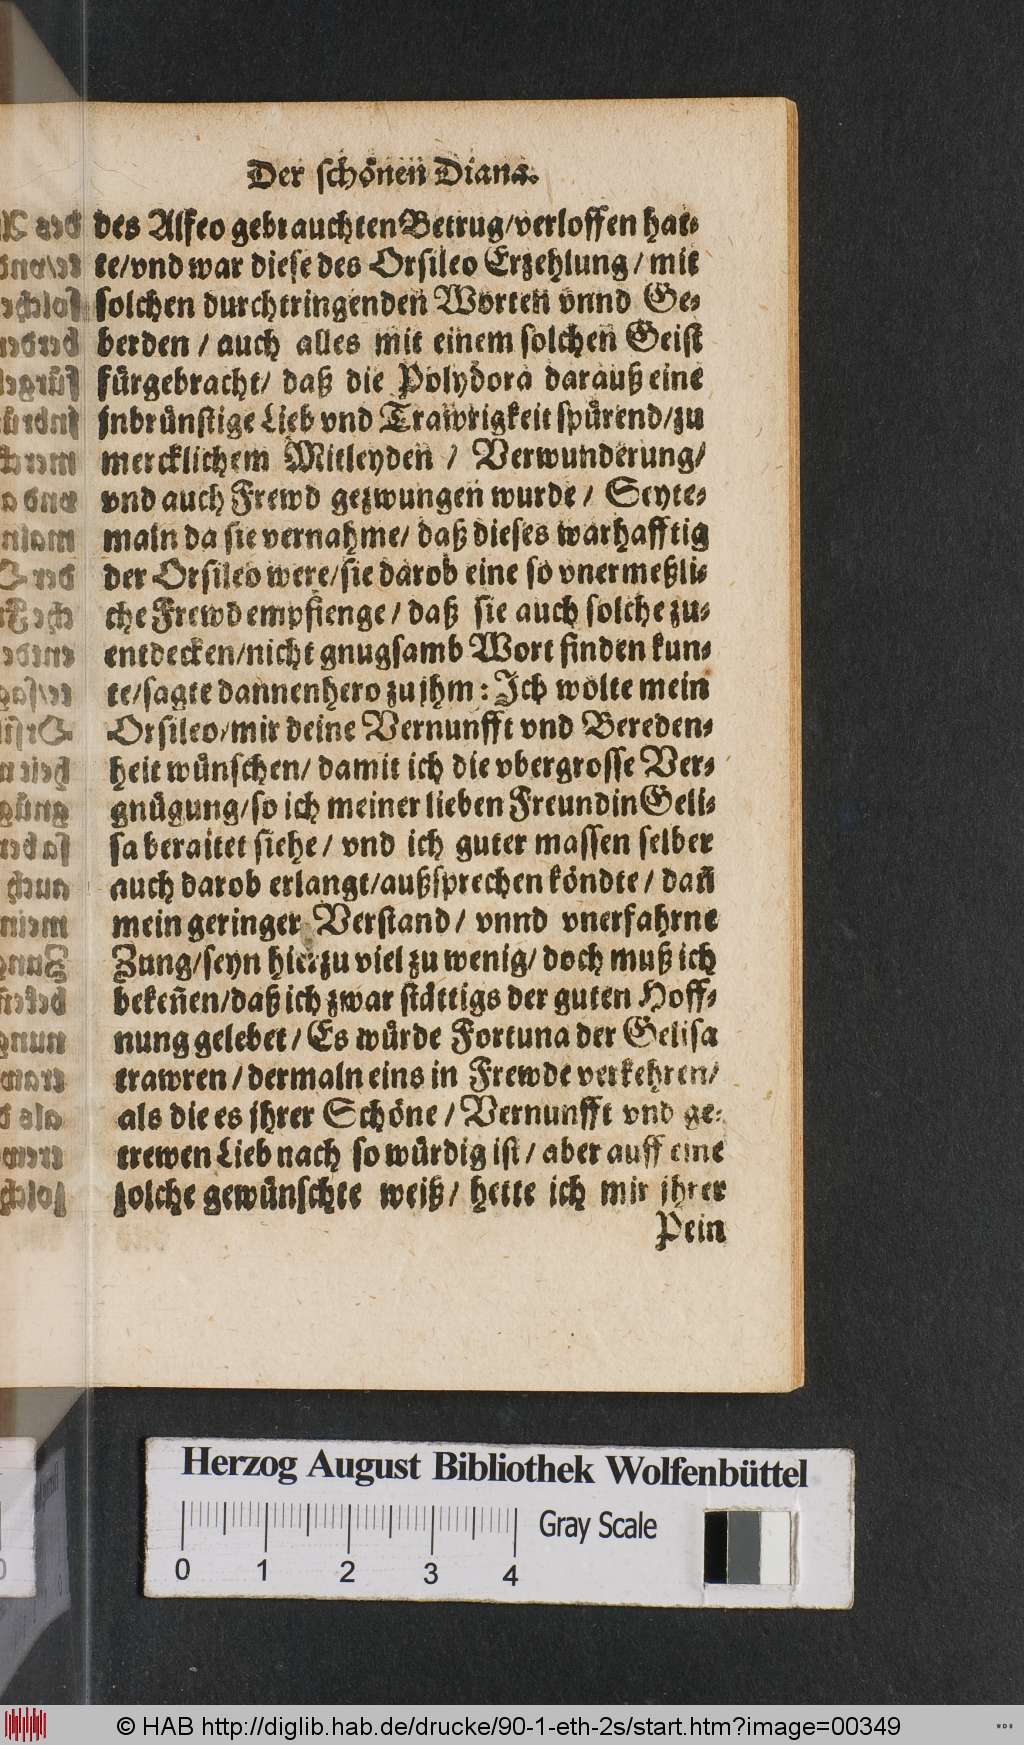 Der schönen Diana.
des Alfeo gebrauchten Betrug/verloffen hat-
te/vnd war diese des Orsileo Erzehlung/ mit
solchen durchtringenden Worten vnnd Ge-
berden / auch alles mit einem solchen Geist
fürgebracht/ daß die Polydora darauß eine
inbrünstige Lieb vnd Trawrigkeit spürend/zu
mercklichem Mitleyden / Verwunderung/
vnd auch Frewd gezwungen wurde / Seyte-
maln da sie vernahme/ daß dieses warhafftig
der Orsileo were/sie darob eine so vnermeßli-
che Frewd empfienge/ daß sie auch solche zu-
entdecken/nicht gnugsamb Wort finden kun-
te/sagte dannenhero zu jhm: Ich wolte mein
Orsileo/mir deine Vernunfft vnd Bereden-
heit wünschen/ damit ich die vbergrosse Ver-
gnügung/so ich meiner lieben Freundin Geli-
sa beraitet siehe/ vnd ich guter massen selber
auch darob erlangt/außsprechen köndte/ dañ
mein geringer Verstand/ vnnd vnerfahrne
Zung/seyn hierzu viel zu wenig/ doch muß ich
bekeñen/daß ich zwar stättigs der guten Hoff-
nung gelebet/ Es würde Fortuna der Gelisa
trawren/dermaln eins in Frewde verkehren/
als die es jhrer Schöne/ Vernunfft vnd ge-
trewen Lieb nach so würdig ist/ aber auff eine
solche gewünschte weiß/ hette ich mir jhrer
Pein
Herzog August Bibliothek Wolfenbüttel
Gray Scale
0 1 2 3 4
© HAB http://diglib.hab.de/drucke/90-1-eth-2s/start.htm?image=00349